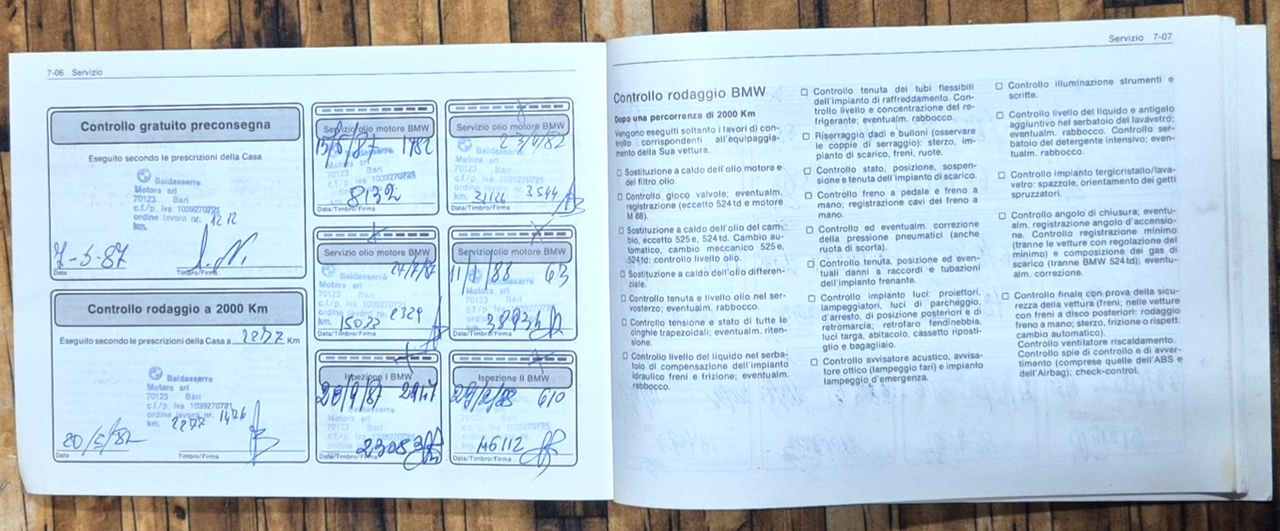 7-06 Servizio
Controllo gratuito preconsegna
Eseguito secondo le prescrizioni della Casa
Baldassarre
Motors srl
70123 Bari
c.f./p. iva 1039270721
ordine lavoro nr. 1212
km.
7-5-87
Data Timbro/Firma
Controllo rodaggio a 2000 Km
Eseguito secondo le prescrizioni della Casa a 2272 Km
Baldassarre
Motors srl
70123 Bari
c.f./p. iva 1039270721
ordine lavoro nr. 1426
km. 2272
20/5/87
Data Timbro/Firma
Servizio olio motore BMW
15/6/87 1782
70123 Bari
c.f./p. iva 1039270721
8132
Data/Timbro/Firma
Servizio olio motore BMW
Baldassarre
Motors srl
70123 Bari
c.f./p. iva 1039270721
ordine lavoro
km. 3544
Data/Timbro/Firma
Servizio olio motore BMW
Baldassarre
Motors srl
70123 Bari
c.f./p. iva 1039270721
ordine lavoro nr. 2329
km. 15022
Data/Timbro/Firma
Servizio olio motore BMW
11/1/88 63
Data/Timbro/Firma
Ispezione I BMW
23083
Data/Timbro/Firma
Ispezione II BMW
610
46112
Data/Timbro/Firma
Servizio 7-07
Controllo rodaggio BMW
Dopo una percorrenza di 2000 Km
Vengono eseguiti soltanto i lavori di con-
trollo corrispondenti all'equipaggia-
mento della Sua vettura.
Sostituzione a caldo dell'olio motore e
del filtro olio.
Controllo gioco valvole; eventualm.
registrazione (eccetto 524td e motore
M 88).
Sostituzione a caldo dell'olio del cam-
bio, eccetto 525e, 524td. Cambio au-
tomatico, cambio meccanico 525e,
524td: controllo livello olio.
Sostituzione a caldo dell'olio differen-
ziale.
Controllo tenuta e livello olio nel ser-
vosterzo; eventualm. rabbocco.
Controllo tensione e stato di tutte le
cinghie trapezoidali; eventualm. riten-
sione.
Controllo livello del liquido nel serba-
toio di compensazione dell'impianto
idraulico freni e frizione; eventualm.
rabbocco.
Controllo tenuta dei tubi flessibili
dell'impianto di raffreddamento. Con-
trollo livello e concentrazione del re-
frigerante; eventualm. rabbocco.
Riserraggio dadi e bulloni (osservare
le coppie di serraggio): sterzo, im-
pianto di scarico, freni, ruote.
Controllo stato, posizione, sospen-
sione e tenuta dell'impianto di scarico.
Controllo freno a pedale e freno a
mano; registrazione cavi del freno a
mano.
Controllo ed eventualm. correzione
della pressione pneumatici (anche
ruota di scorta).
Controllo tenuta, posizione ed even-
tuali danni a raccordi e tubazioni
dell'impianto frenante.
Controllo impianto luci: proiettori,
lampeggiatori, luci di parcheggio,
d'arresto, di posizione posteriori e di
retromarcia; retrofaro fendinebbia,
luci targa, abitacolo, cassetto riposti-
glio e bagagliaio.
Controllo avvisatore acustico, avvisa-
tore ottico (lampeggio fari) e impianto
lampeggio d'emergenza.
Controllo illuminazione strumenti e
scritte.
Controllo livello del liquido e antigelo
aggiuntivo nel serbatoio del lavavetro;
eventualm. rabbocco. Controllo ser-
batoio del detergente intensivo; even-
tualm. rabbocco.
Controllo impianto tergicristallo/lava-
vetro: spazzole, orientamento dei getti
spruzzatori.
Controllo angolo di chiusura; eventu-
alm. registrazione angolo d'accensio-
ne. Controllo registrazione minimo
(tranne le vetture con regolazione del
minimo) e composizione dei gas di
scarico (tranne BMW 524td); eventu-
alm. correzione.
Controllo finale con prova della sicu-
rezza della vettura (freni; nelle vetture
con freni a disco posteriori: rodaggio
freno a mano; sterzo, frizione o rispett.
cambio automatico).
Controllo ventilatore riscaldamento.
Controllo spie di controllo e di avver-
timento (comprese quelle dell'ABS e
dell'Airbag); check-control.